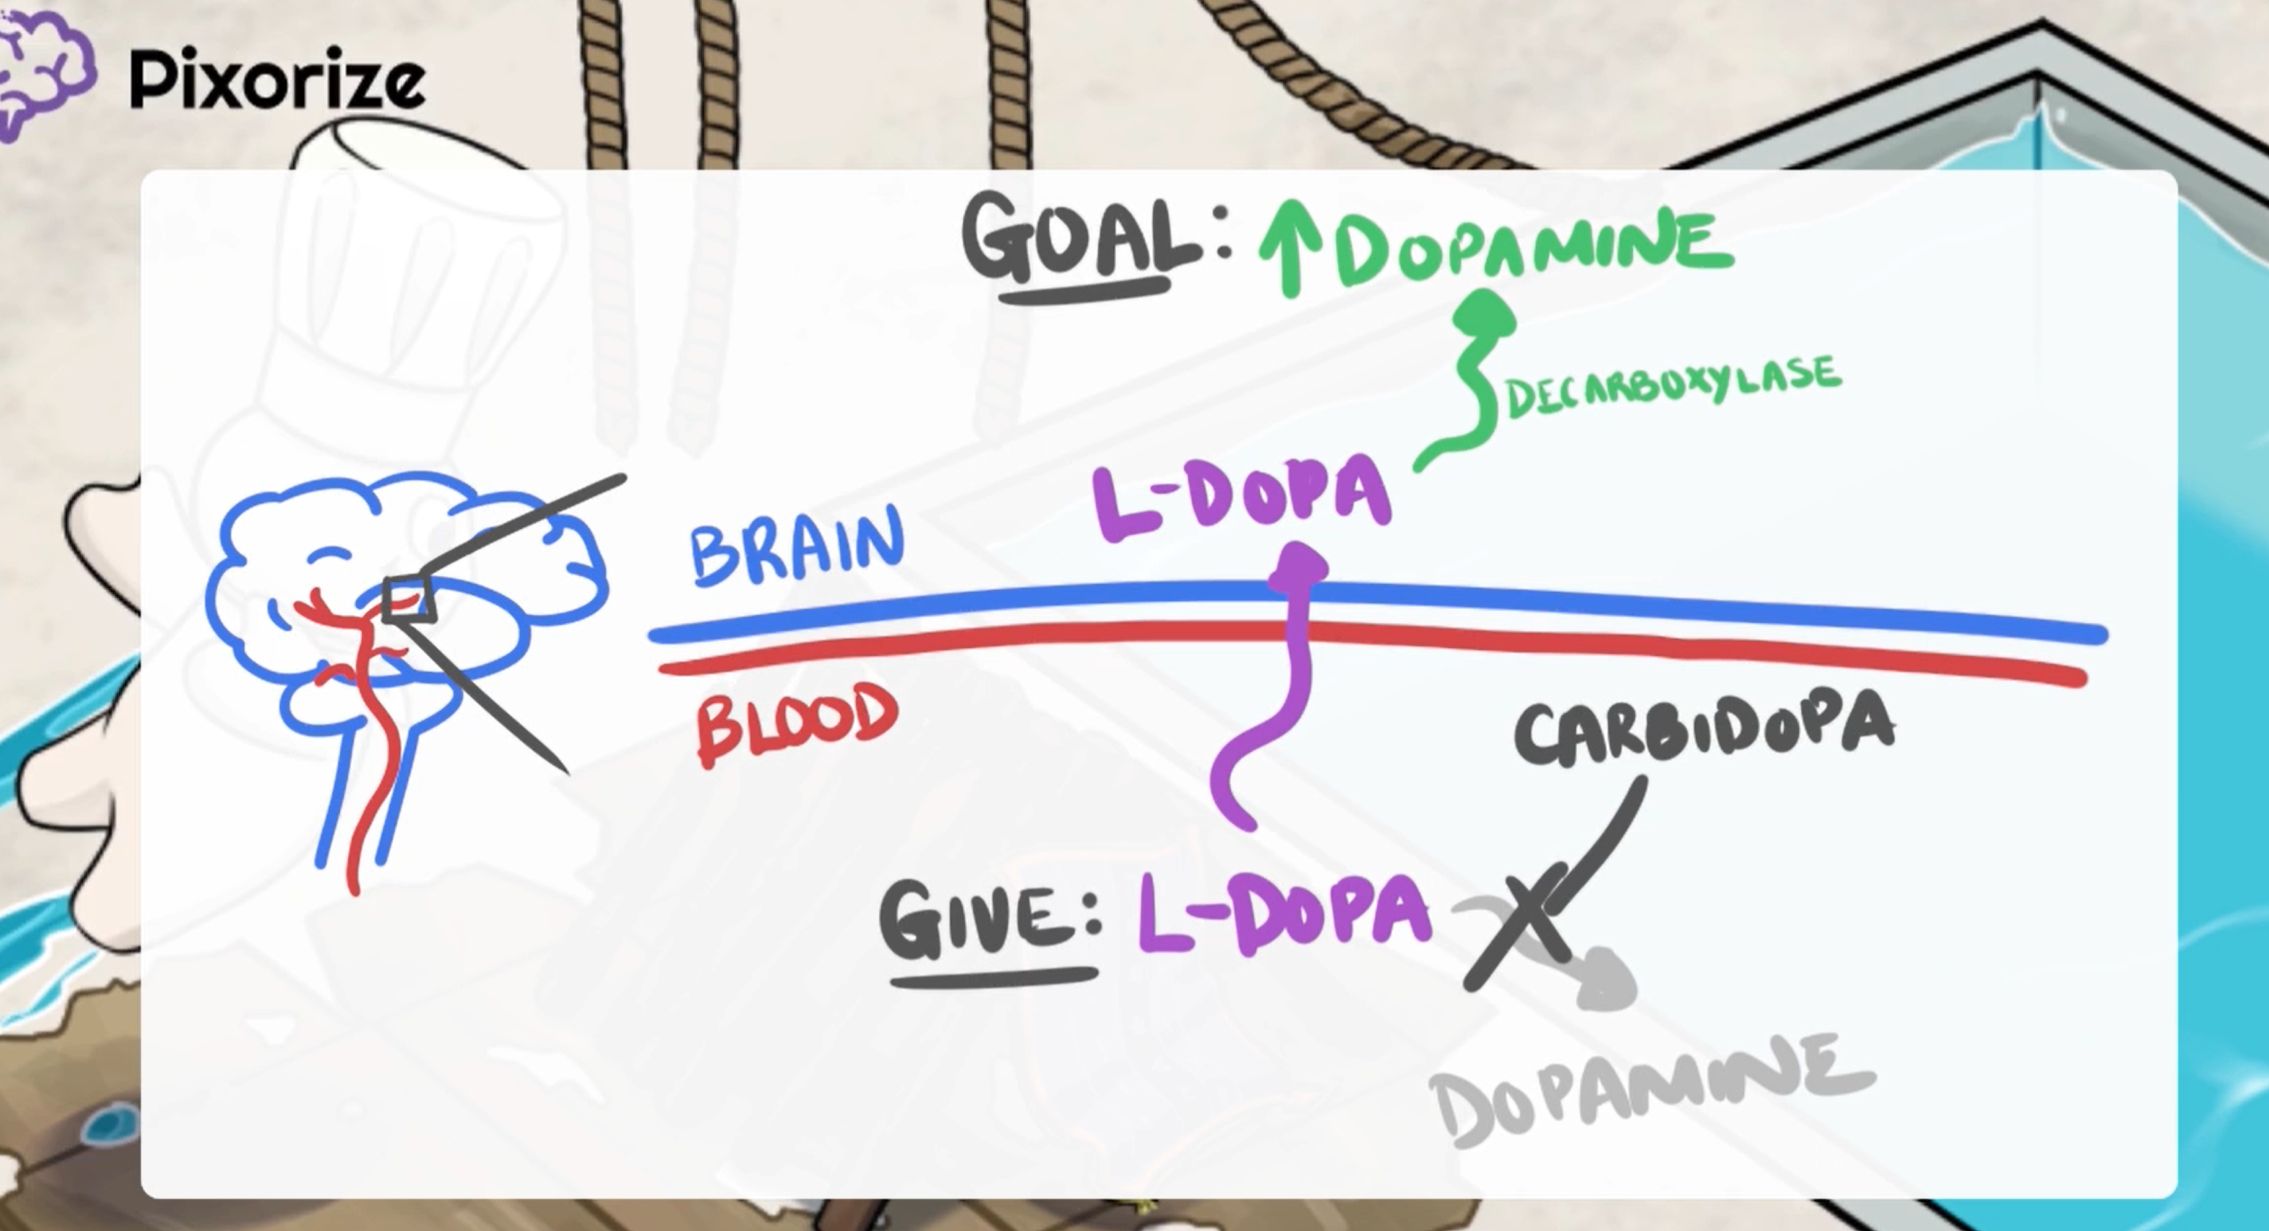 Pixorize
GOAL: ↑ DOPAMINE
DECARBOXYLASE
L-DOPA
BRAIN
BLOOD
CARBIDOPA
GIVE: L-DOPA
DOPAMINE